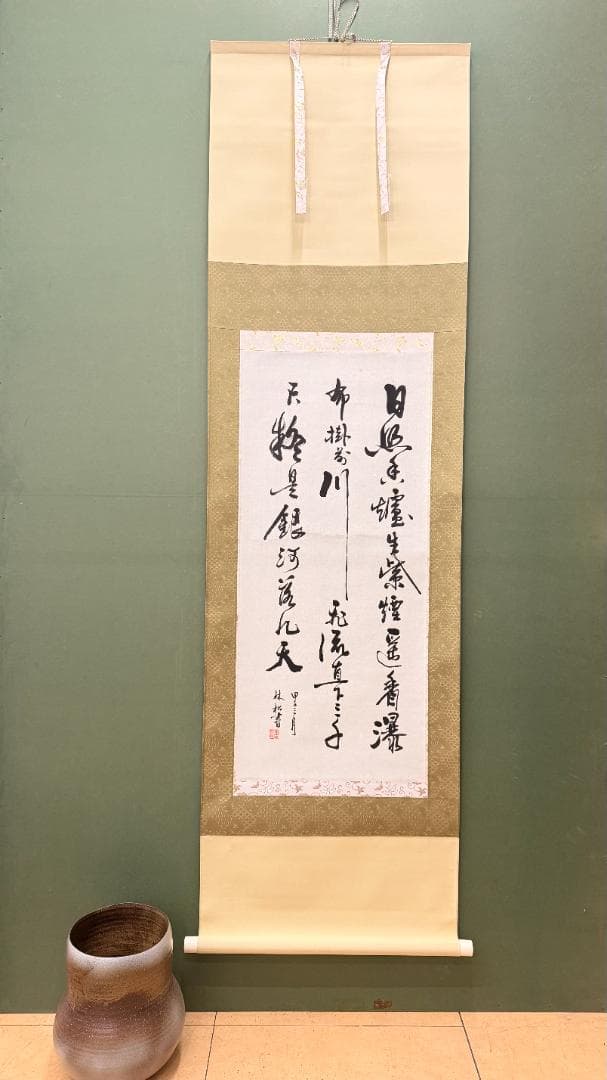 日照香爐生紫煙遥看瀑
布掛前川飛流直下三千
尺疑是銀河落九天
林松書